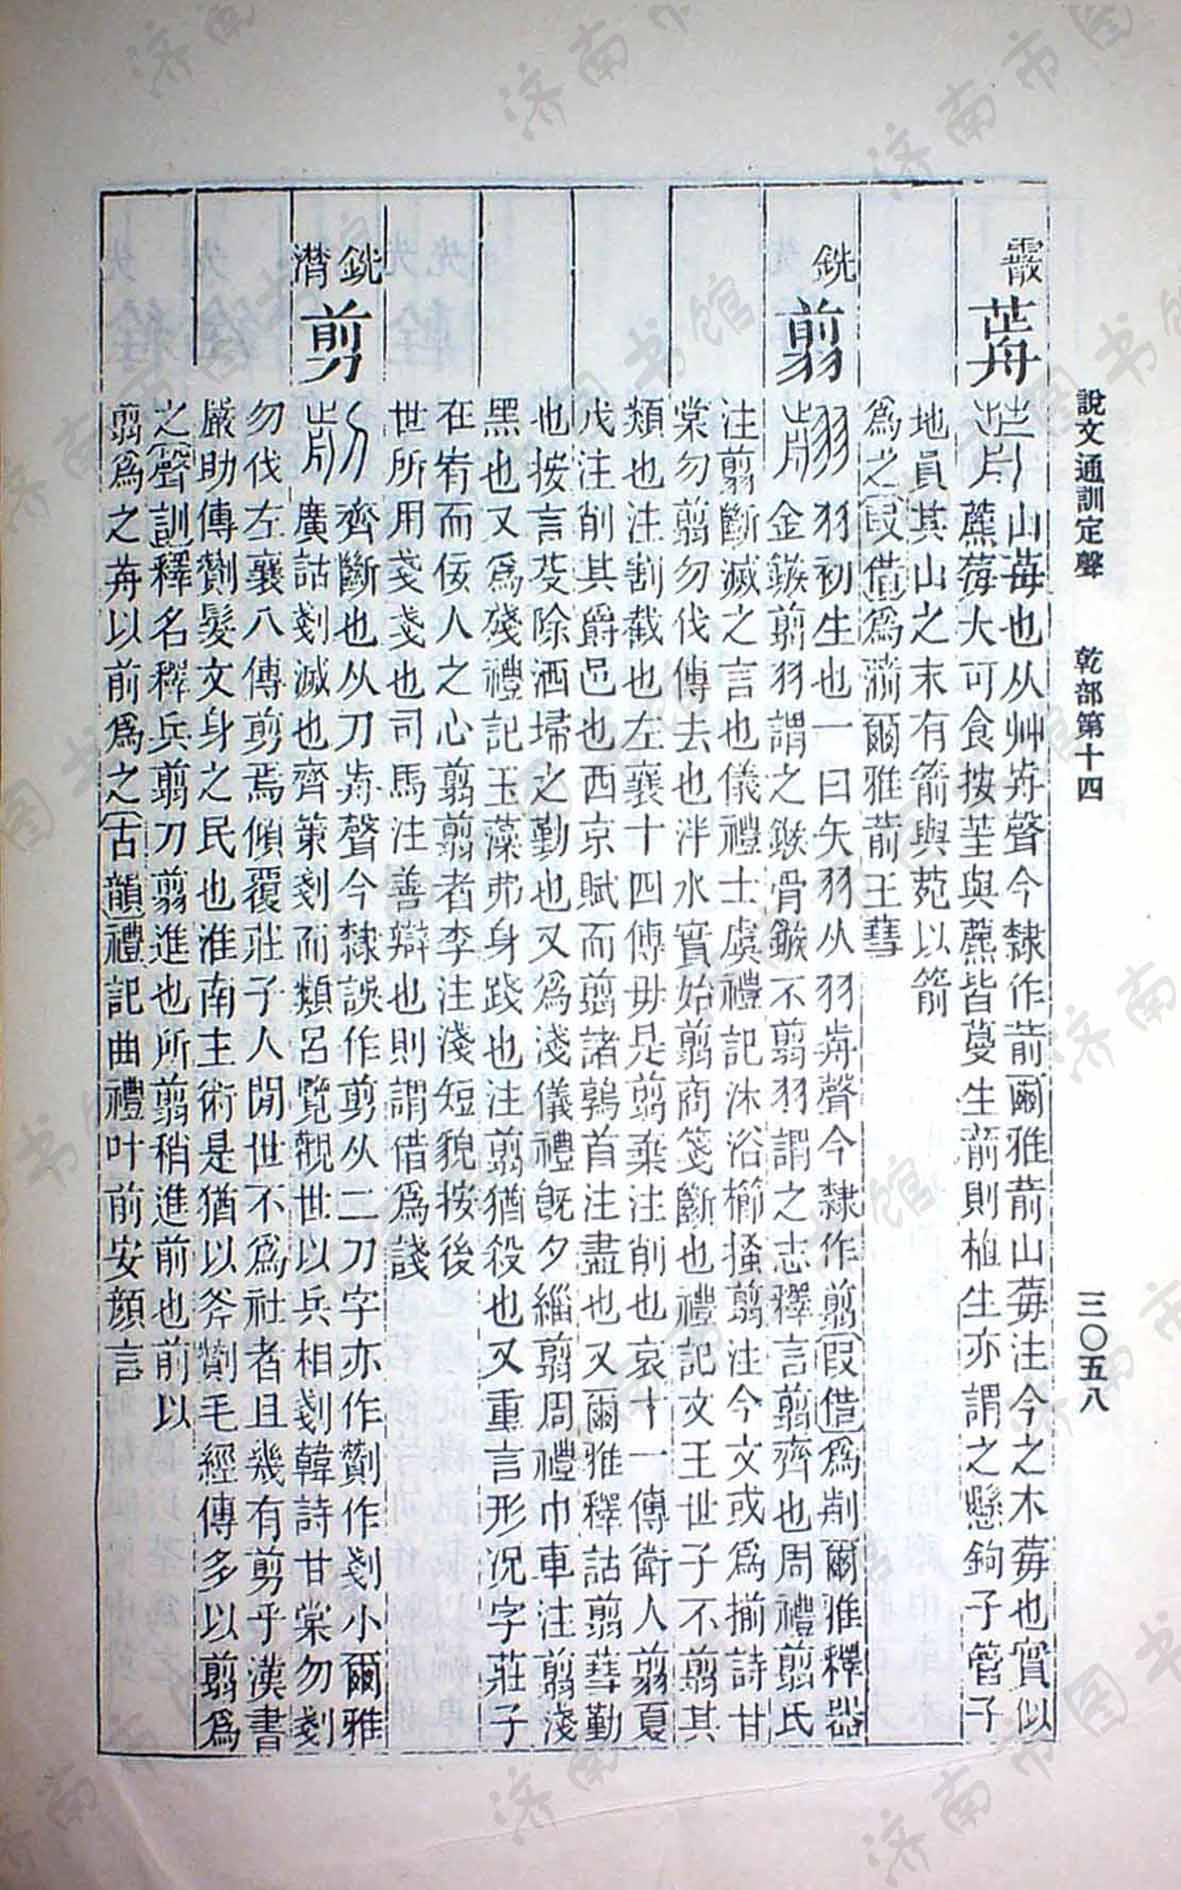 說文通訓定聲 乾部第十四 三〇五八
霰
山莓也从艸歬聲今隸作葥爾雅葥山莓注今之木莓也實似
藨莓大可食按茥與藨皆蔓生葥則植生亦謂之懸鉤子管子
地員其山之末有箭與苑以箭
爲之叚借爲湔爾雅葥王彗
銑 翦
羽初生也一曰矢羽从羽歬聲今隸作翦叚借爲剬爾雅釋器
金鏃翦羽謂之鍭骨鏃不翦羽謂之志釋言翦齊也周禮翦氏
注翦斷滅之言也儀禮士虞禮記沐浴櫛搔翦注今文或爲揃詩甘
棠勿翦勿伐傳去也泮水實始翦商箋斷也禮記文王世子不翦其
類也注割截也左襄十四傳毋是翦棄注削也哀十一傳衛人翦夏
戊注削其爵邑也西京賦而翦諸鶉首注盡也又爾雅釋詁翦彗勤
也按言芟除洒埽之勤也又爲淺儀禮旣夕緇翦周禮巾車注翦淺
黑也又爲殘禮記玉藻弗身踐也注翦猶殺也又重言形況字莊子
在宥而佞人之心翦翦者李注淺短貌按後
世所用戔戔也司馬注善辯也則謂借爲諓
銑 剪
齊斷也从刀歬聲今隸誤作剪从二刀字亦作㔍作剗小爾雅
潸
廣詁剗滅也齊策剗而類呂覽觀世以兵相剗韓詩甘棠勿剗
勿伐左襄八傳剪焉傾覆莊子人閒世不爲社者且幾有剪乎漢書
嚴助傳㔍髮文身之民也淮南主術是猶以斧㔍毛經傳多以翦爲
之聲訓釋名釋兵翦刀翦進也所翦稍進前也前以
翦爲之歬以前爲之古韻禮記曲禮叶前安顏言